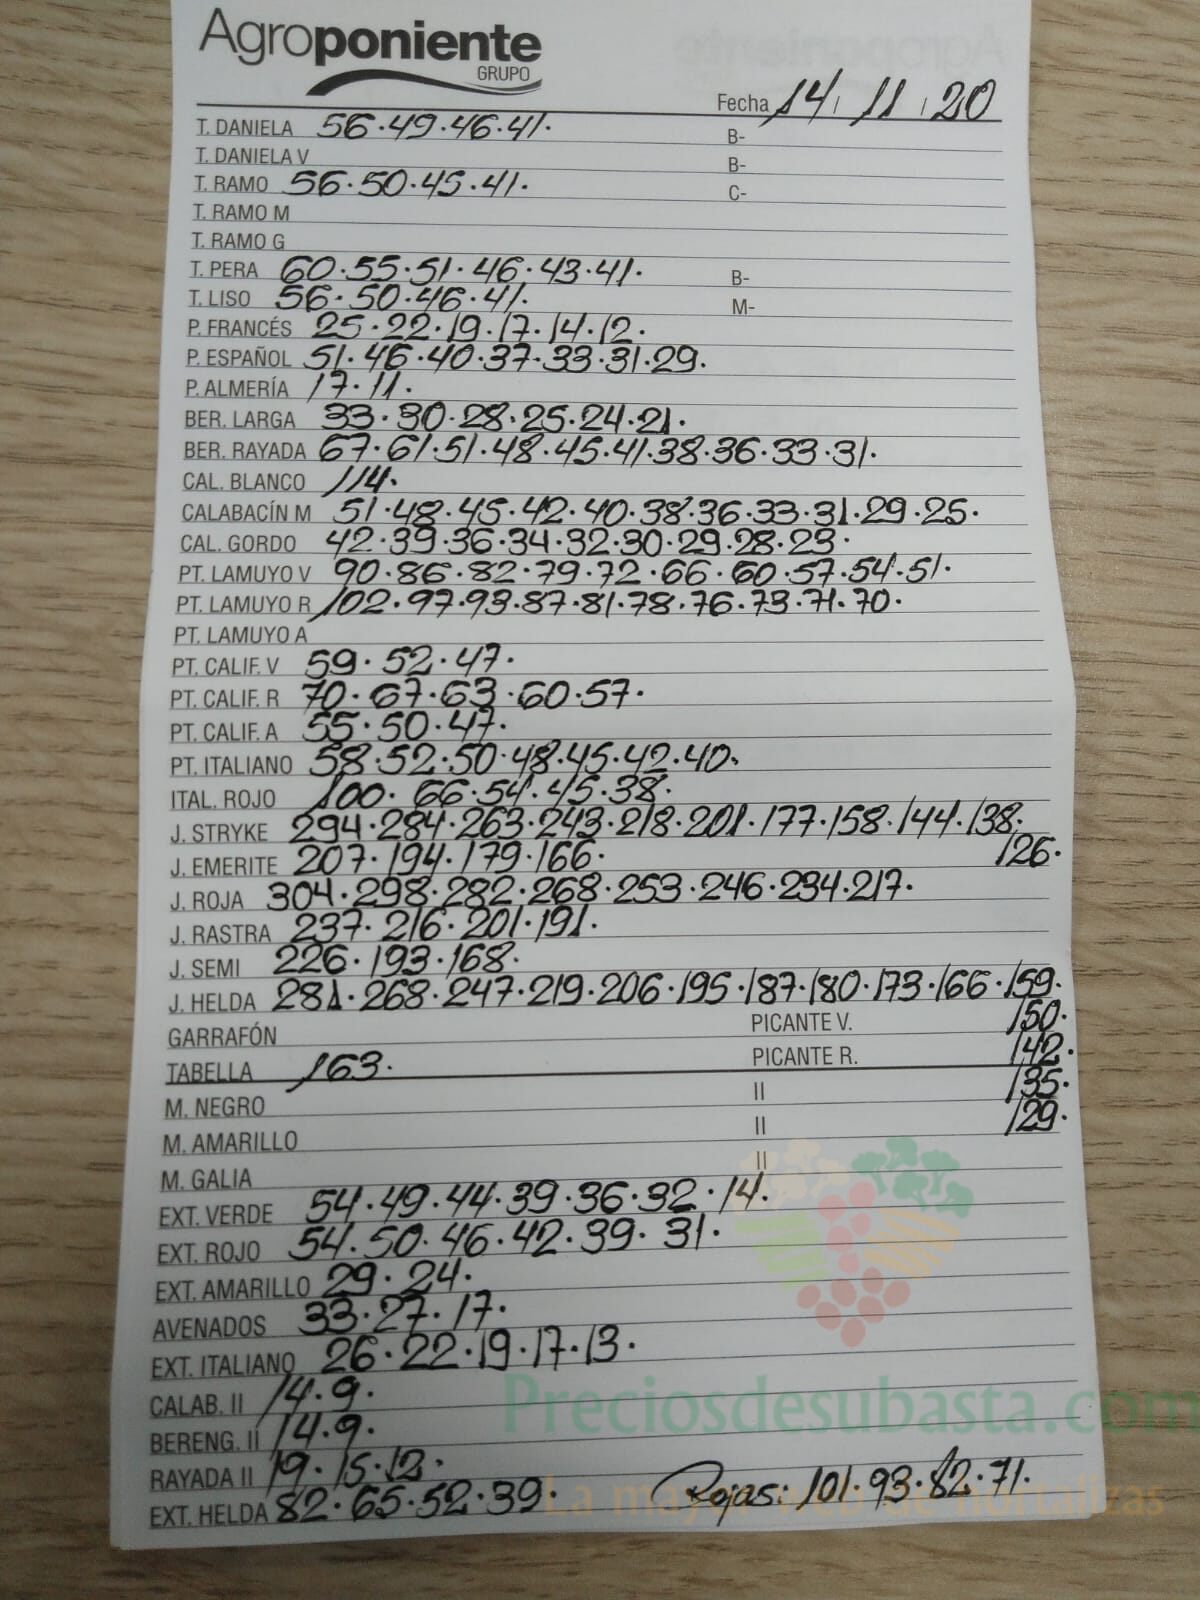 Agroponiente
GRUPO
Fecha 14 / 11 / 20
T. DANIELA 56·49·46·41· B-
T. DANIELA V B-
T. RAMO 56·50·45·41· C-
T. RAMO M
T. RAMO G
T. PERA 60·55·51·46·43·41· B-
T. LISO 56·50·46·41· M-
P. FRANCÉS 25·22·19·17·14·12·
P. ESPAÑOL 51·46·40·37·33·31·29·
P. ALMERÍA 17·11·
BER. LARGA 33·30·28·25·24·21·
BER. RAYADA 67·61·51·48·45·41·38·36·33·31·
CAL. BLANCO 114·
CALABACÍN M 51·48·45·42·40·38·36·33·31·29·25·
CAL. GORDO 42·39·36·34·32·30·29·28·23·
PT. LAMUYO V 90·86·82·79·72·66·60·57·54·51·
PT. LAMUYO R 102·97·93·87·81·78·76·73·71·70·
PT. LAMUYO A
PT. CALIF. V 59·52·47·
PT. CALIF. R 70·67·63·60·57·
PT. CALIF. A 55·50·47·
PT. ITALIANO 58·52·50·48·45·42·40·
ITAL. ROJO 100·66·54·45·38·
J. STRYKE 294·284·263·243·218·201·177·158·144·138·
J. EMERITE 207·194·179·166· 126·
J. ROJA 304·298·282·268·253·246·234·217·
J. RASTRA 237·216·201·191·
J. SEMI 226·193·168·
J. HELDA 281·268·247·219·206·195·187·180·173·166·159·
GARRAFÓN PICANTE V. 150·
TABELLA 163· PICANTE R. 142·
M. NEGRO II 135·
M. AMARILLO II 129·
M. GALIA II
EXT. VERDE 54·49·44·39·36·32·14·
EXT. ROJO 54·50·46·42·39·31·
EXT. AMARILLO 29·24·
AVENADOS 33·27·17·
EXT. ITALIANO 26·22·19·17·13·
Preciosdesubasta.com
CALAB. II 14·9·
BERENG. II 14·9·
RAYADA II 19·15·12·
EXT. HELDA 82·65·52·39· Rojas: 101·93·82·71·
La mayor web de hortalizas